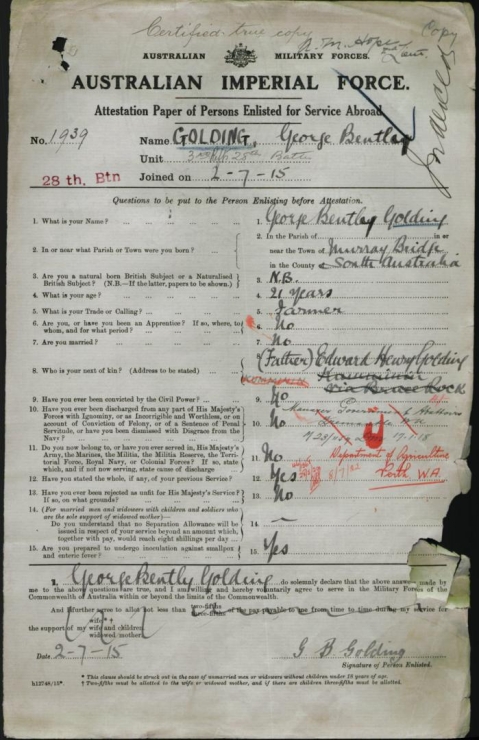 Certified true copy
Copy
AUSTRALIAN MILITARY FORCES.
AUSTRALIAN IMPERIAL FORCE.
Attestation Paper of Persons Enlisted for Service Abroad
No. 1939 Name GOLDING, George Bentley
Unit 28th Batn
28 th. Btn Joined on 2-7-15
Questions to be put to the Person Enlisting before Attestation.
1. What is your Name? ... 1. George Bentley Golding
2. In or near what Parish or Town were you born? ... 2. In the Parish of in or
near the Town of Murray Bridge
in the County of South Australia
3. Are you a natural born British Subject or a Naturalised
British Subject? (N.B.—If the latter, papers to be shown.) 3. N.B.
4. What is your age? ... 4. 21 years
5. What is your Trade or Calling? ... 5. Farmer
6. Are you, or have you been an Apprentice? If so, where, to
whom, and for what period? ... 6. No
7. Are you married? ... 7. No
8. Who is your next of kin? (Address to be stated) ... 8. (Father) Edward Henry Golding
via Bruce Rock
9. Have you ever been convicted by the Civil Power? ... 9. No
10. Have you ever been discharged from any part of His Majesty's
Forces with Ignominy, or as Incorrigible and Worthless, or on
account of Conviction of Felony, or of a Sentence of Penal
Servitude, or have you been dismissed with Disgrace from the
Navy? ... 10. No
11. Do you now belong to, or have you ever served in, His Majesty's
Army, the Marines, the Militia, the Militia Reserve, the Territorial
Force, Royal Navy, or Colonial Forces? If so, state
which, and if not now serving, state cause of discharge 11. No
Department of Agriculture
Perth W.A.
12. Have you stated the whole, if any, of your previous Service? 12. Yes
13. Have you ever been rejected as unfit for His Majesty's Service?
If so, on what grounds? 13. No
14. (For married men and widowers with children and soldiers who
are the sole support of widowed mother)—
Do you understand that no Separation Allowance will be
issued in respect of your service beyond an amount which,
together with pay, would reach eight shillings per day ... 14. —
15. Are you prepared to undergo inoculation against smallpox
and enteric fever? ... 15. Yes
I, George Bently Golding do solemnly declare that the above answers made by
me to the above questions are true, and I am willing and hereby voluntarily agree to serve in the Military Forces of the
Commonwealth of Australia within or beyond the limits of the Commonwealth.
And I further agree to allot not less than two-fifths of the pay payable to me from time to time during my service for
the support of my wife and children
widowed mother
Date 2-7-15 G B Golding
Signature of Person Enlisted.
* This clause should be struck out in the case of unmarried men or widowers without children under 18 years of age.
† Two-fifths must be allotted to the wife or widowed mother, and if there are children three-fifths must be allotted.